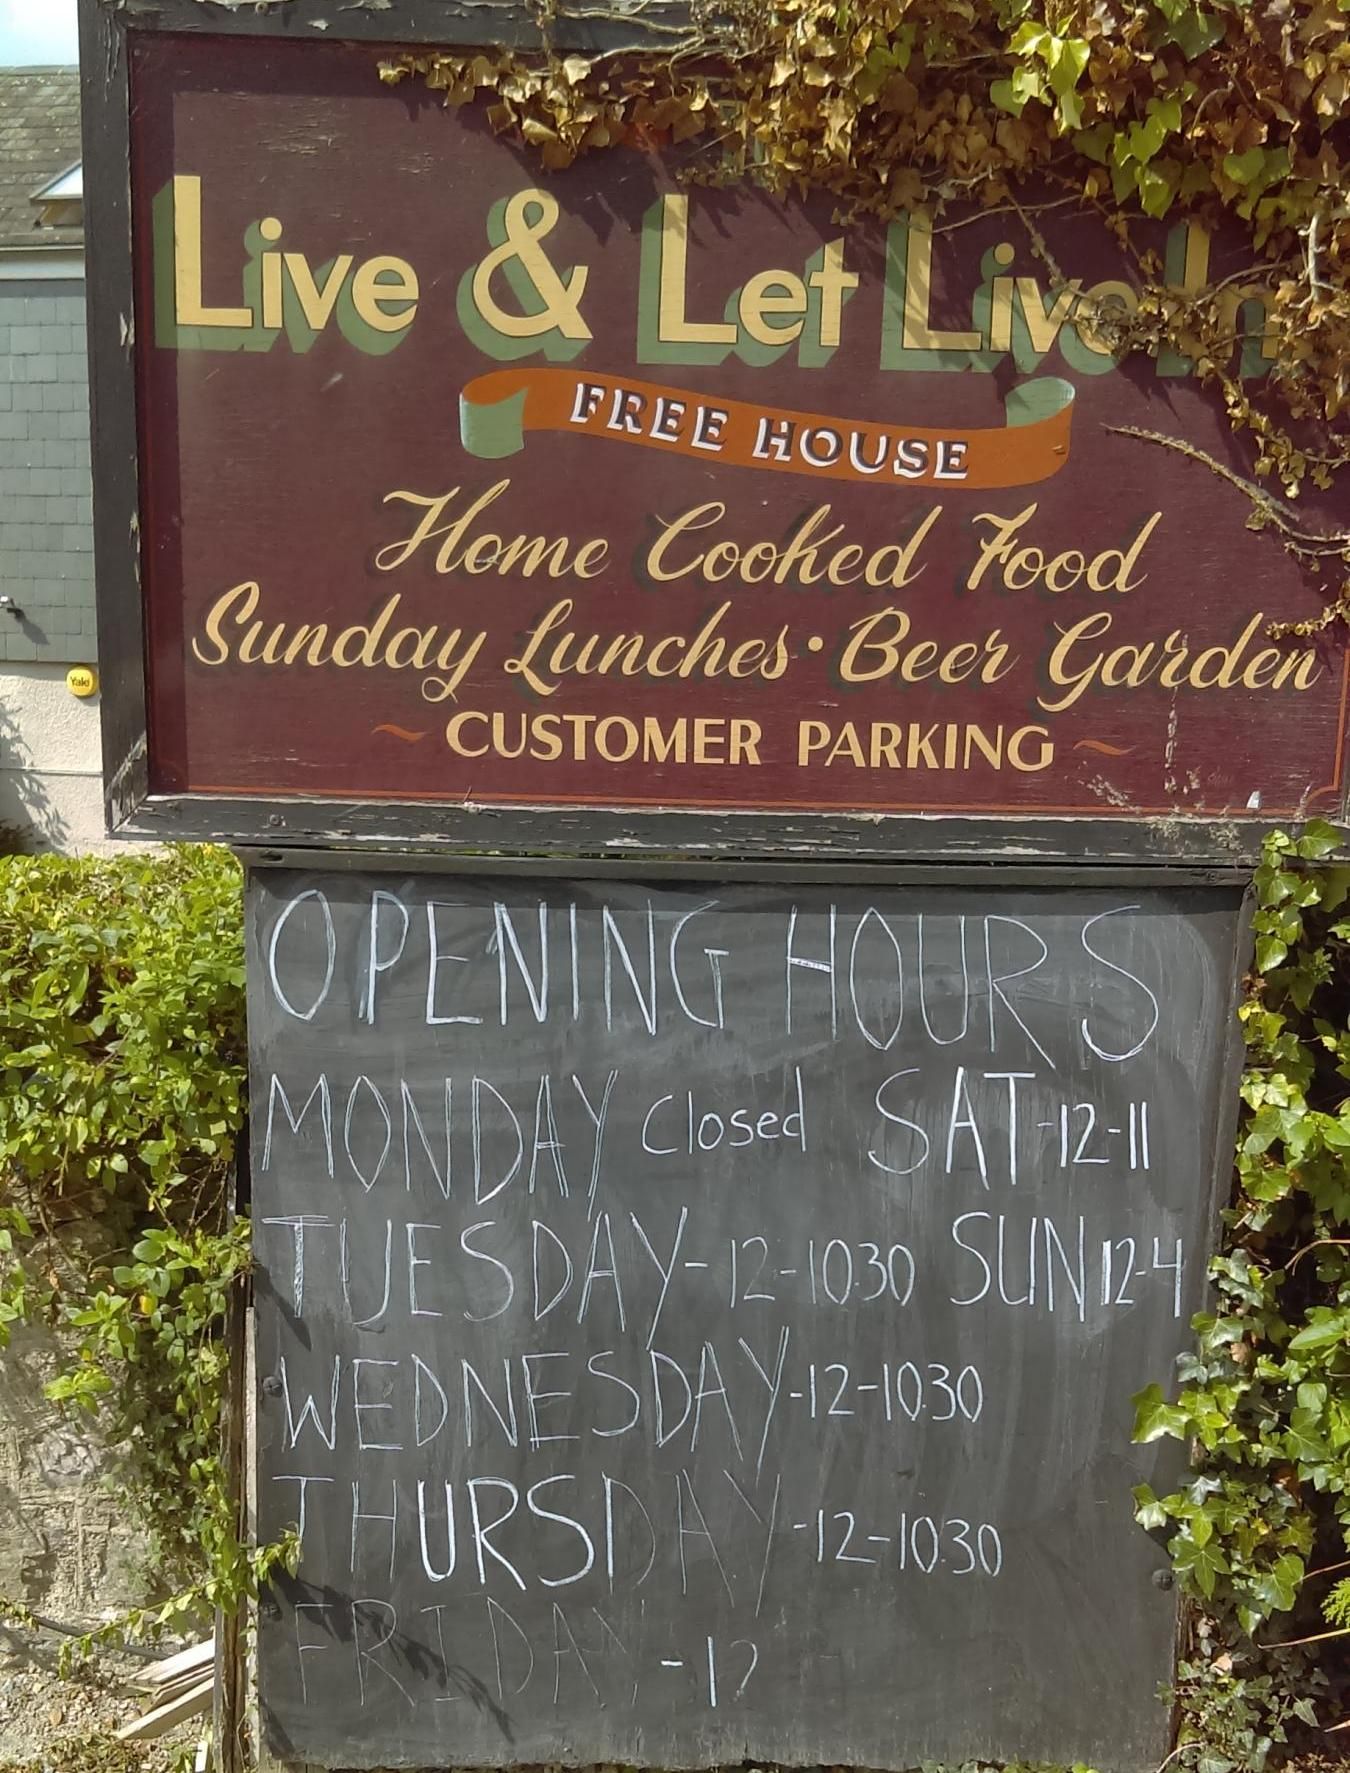 Live & Let Live In
FREE HOUSE
Home Cooked Food
Sunday Lunches • Beer Garden
~ CUSTOMER PARKING ~
Yale
OPENING HOURS
MONDAY Closed SAT-12-11
TUESDAY-12-10.30 SUN 12-4
WEDNESDAY-12-10.30
THURSDAY-12-10.30
FRIDAY -12